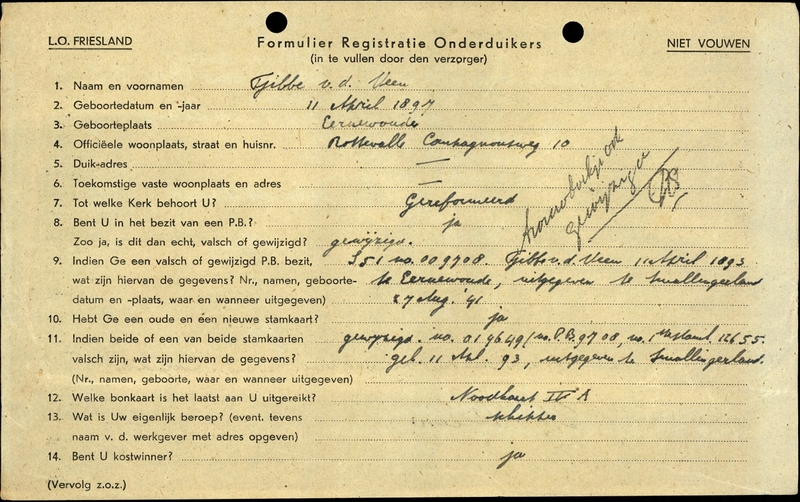 L.O. FRIESLAND
Formulier Registratie Onderduikers
NIET VOUWEN
(in te vullen door den verzorger)
1. Naam en voornamen Tjibbe v.d. Veen
2. Geboortedatum en -jaar 11 April 1897
3. Geboorteplaats Eernewoude
4. Officiëele woonplaats, straat en huisnr. Rottevalle 10
5. Duik-adres —
6. Toekomstige vaste woonplaats en adres —
7. Tot welke Kerk behoort U? Gereformeerd
8. Bent U in het bezit van een P.B.? ja
Zoo ja, is dit dan echt, valsch of gewijzigd? gewijzigd.
9. Indien Ge een valsch of gewijzigd P.B. bezit, S51 no. 009708. Tjibbe v.d. Veen 11 April 1893
wat zijn hiervan de gegevens? Nr., namen, geboorte- te Eernewoude, uitgegeven te Smallingerland
datum en -plaats, waar en wanneer uitgegeven) 27 Aug. '41
10. Hebt Ge een oude en een nieuwe stamkaart? ja
11. Indien beide of een van beide stamkaarten gewijzigd. no. 019649/no. P.B. 9708, no. 12655.
valsch zijn, wat zijn hiervan de gegevens? geb. 11 Apl. 93, uitgegeven te Smallingerland.
(Nr., namen, geboorte, waar en wanneer uitgegeven)
12. Welke bonkaart is het laatst aan U uitgereikt? Noodkaart A
13. Wat is Uw eigenlijk beroep? (event. tevens schipper
naam v. d. werkgever met adres opgeven)
14. Bent U kostwinner? ja
(Vervolg z.o.z.)
trouwboekje ook
gewijzigd